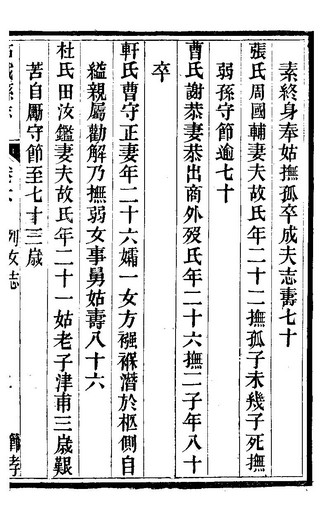 素終身奉姑撫孤卒成夫志壽七十
張氏周國輔妻夫故氏年二十二撫孤子未幾子死撫
弱孫守節逾七十
曹氏謝恭妻恭出商外歿氏年二十六撫二子年八十
卒
軒氏曹守正妻年二十六孀一女方襁褓潛於柩側自
縊親屬勸解乃撫弱女事舅姑壽八十六
杜氏田汝鑑妻夫故氏年二十一姑老子津甫三歲艱
苦自勵守節至七十三歲
列女志
節孝